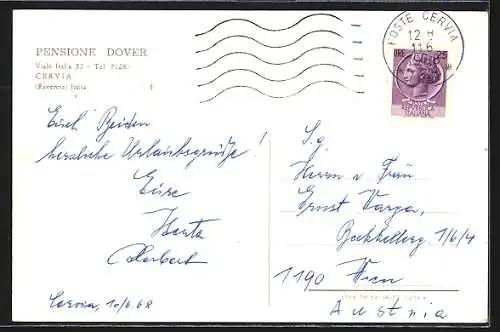 PENSIONE DOVER
Viale Italia 53 - Tel 71285
CERVIA
(Ravenna) Italia
POSTE CERVIA
12 H
11.6
1968
25
POSTE
REPVBBLICA
ITALIANA
Euch Beiden
herzliche Urlaubsgrüße!
Eure
Herta
Herbert
Cervia, 10/6.68
S.g.
Herrn u Frau
Ernst Varga,
1/6/4
1190 Wien
Austria